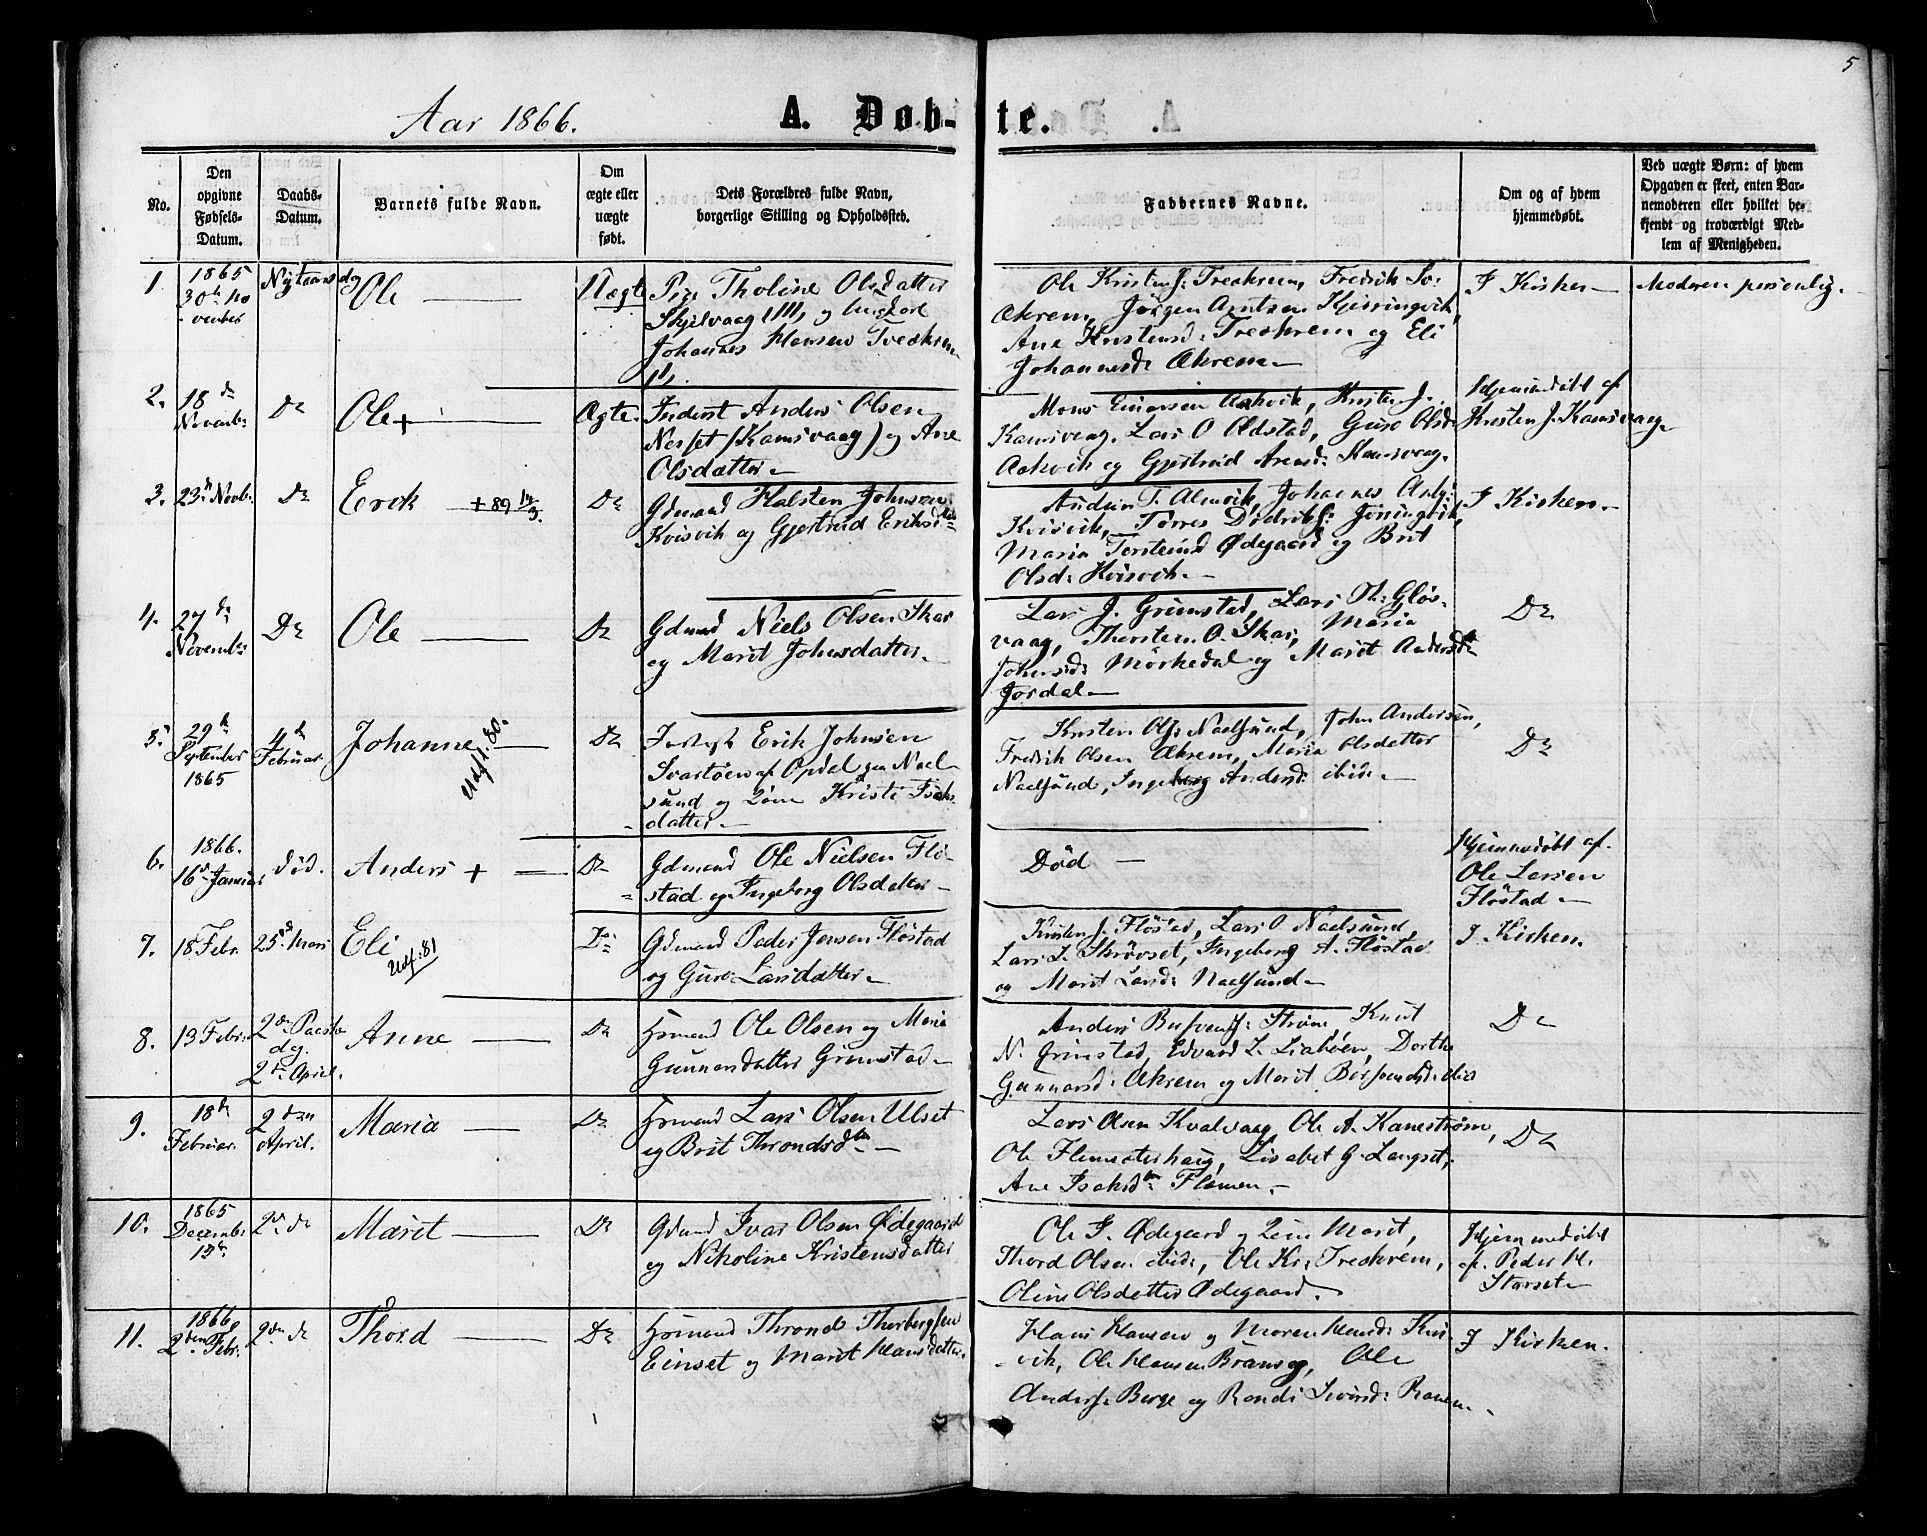 5
Aar 1866.
A. Døb-te.
No.
Den
opgivne
Fødsels-
Datum.
Daabs-
Datum.
Barnets fulde Navn.
Om
ægte eller
uægte
født.
Dets Forældres fulde Navn,
borgerlige Stilling og Opholdssted.
Faddernes Navne.
Om og af hvem
hjemmedøbt.
Ved uægte Børn: af hvem
Opgaven er skeet, enten Bar-
nemoderen eller hvilket be-
kjendt og troværdigt Med-
lem af Menigheden.
1.
1865
30te No
vember
Nytaarsdag
Ole
Uægte
Pige Tholine Olsdatter
Skjelvaag og Ungkarl
Johannes Hansen
Ole Kristens: Treekrem, Fredrik
Ækrem, Jørgen Arntsen Kjøringvik,
Ane Kristensd: Treekrem og Eli
Johannesd: Ækrem
I Kirken
Moderen personlig.
2.
18de
Novemb:
Do
Ole +
Ægte.
Inderst Anders Olsen
Nerset (Kamsvaag) og Ane
Olsdatter
Mons Einersen Aakvik, Kristen J.
Kamsvaag, Lars O Oldstad, Guro Olsd:
Aakvik og Gjertrud Arensd: Kamsvaag.
Hjemmedøbt af
Kristen J. Kamsvaag
3.
23de Novb:
Do
Erik + 89
Do
Gdmand Halsten Johnsen
Kvisvik og Gjertrud Eriksd
Anders T. Almvik, Johannes
Kvisvik, Torres Jöringvik,
Maria Torsteinsd Ødegaard og Brit
Olsd: Kvisvik.
I Kirken
4.
27de
Novemb:
Do
Ole
Do
Gdmand Niels Olsen Skar
og Marit Johnsdatter
Lars J. Grimstad, Lars Th: Gløs-
vaag, Thorstein O. Skar, Maria
Johnsd: Mörkedal og Marit Andersdtr
Jordal
Do
5.
29de
September
1865
4de
Februar
Johanne
Udfl. 80.
Do
Erik Johnsen
Svartøen af Opdal paa Nael-
sund og Kristi Isaks-
datter
Kristen Ols: Naelsund, John Andersen,
Fredrik Olsen Ækrem, Maria Olsdatter
Naelsund, Ingeborg Andersd: ibid:
Do
6.
1866.
16de Januar
død.
Anders +
Do
Gdmand Ole Nielsen Flø-
stad og Ingeborg Olsdatter
Död
Hjemmedøbt af
Ole Larsen
Fløstad
7.
18 Febr.
25de Mars
Eli
Udf: 81
Do
Gdmand Peder Jensen Fløstad
og Guro Larsdatter
Kristen J. Fløstad, Lars O Naelsund,
Lars L. Skrövset, Ingeborg A. Fløstad
og Marit Larsd: Naelsund
I Kirken
8.
13 Febr:
2den Paaske
dag.
2de April.
Anne
Do
Hsmand Ole Olsen og Maria
Gunnarsdatter Grimstad
Anders Strøm, Knut
N. Grimstad, Edvard L. Liabøen, Dorthe
Gunnarsd: Ækrem og Marit
Do
9.
18de
Februar.
2den
April.
Maria
Do
Hsmand Lars Olsen Ulset
og Brit Throndsdtr
Lars Olsen Kvalvaag, Ole A. Kanestrøm,
Ole Flemsæterhaug, Lisabet G. Langset,
Ane Isaksdtr Flemen.
Do
10.
1865
Decemb:
13de
2de do
Marit
Do
Gdmand Ivar Olsen Ødegaard
og Nikoline Kristensdatter
Ole I. Ødegaard og Marit,
Thord Olsen ibid:, Ole Kr: Treekrem,
Oline Olsdatter Ødegaard.
Hjemmedöbt
af Peder H.
Storset
11.
1866,
2den Febr.
2den do
Thord
Do
Hsmand Thrond Thorbergsen
Einset og Marit Hansdatter
Hans Hansen og Maren Hansd: Kvis-
vik, Ole Hansen Bræmsog, Ole
Anders: Berge og Randi Sivertsd: Ranem
I Kirken.